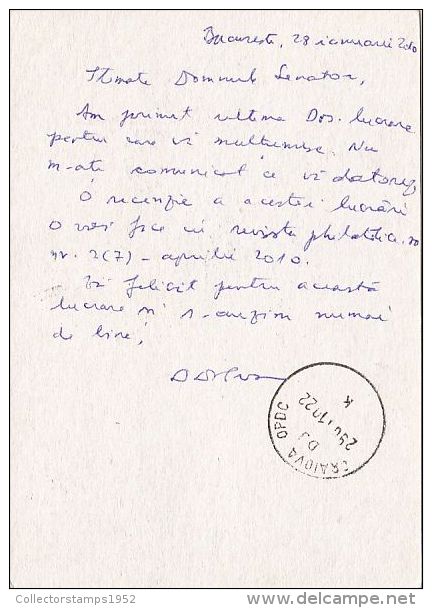 București, 28 ianuarie 2010
Stimate Domnule Senator,
Am primit ultima Dvs. lucrare
pentru care vă mulțumesc. Nu
m-ați comunicat ce vă datorez.
O recenzie a acestei lucrări
o voi face în revista philatelica.ro
nr. 2(7) – aprilie 2010.
Vă felicit pentru această
lucrare și s-auzim numai
de bine!
CRAIOVA OPDC
DJ
Collectorstamps1952
delcampe.net